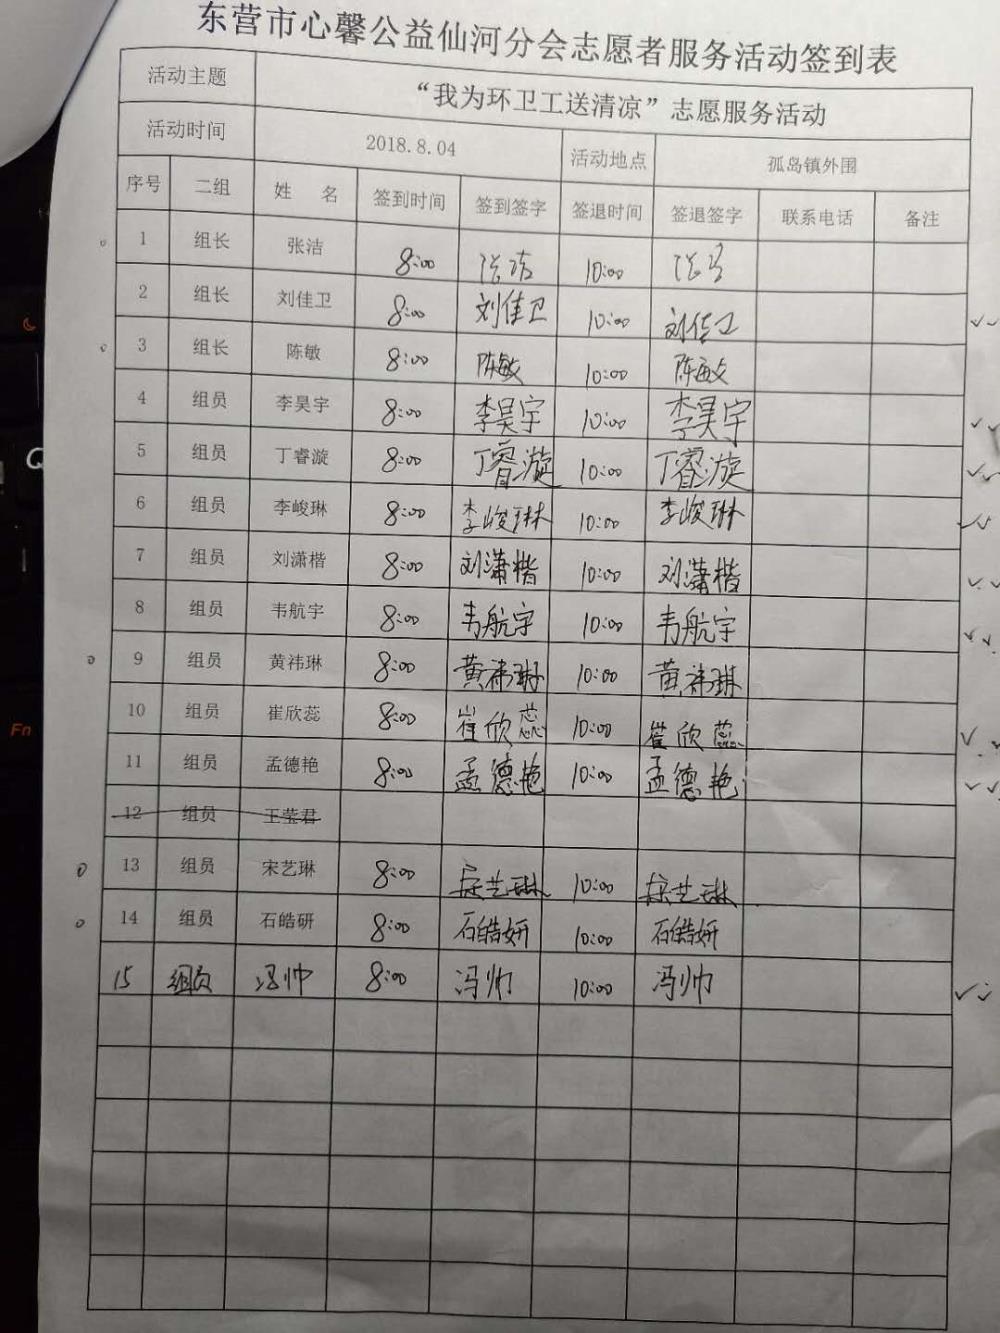 东营市心馨公益仙河分会志愿者服务活动签到表
活动主题 “我为环卫工送清凉”志愿服务活动
活动时间 2018.8.04 活动地点 孤岛镇外围
序号 二组 姓 名 签到时间 签到签字 签退时间 签退签字 联系电话 备注
1 组长 张洁 8:00 张洁 10:00
2 组长 刘佳卫 8:00 刘佳卫 10:00 刘佳卫
3 组长 陈敏 8:00 陈敏 10:00 陈敏
4 组员 李昊宇 8:00 李昊宇 10:00 李昊宇
5 组员 丁睿漩 8:00 丁睿漩 10:00 丁睿漩
6 组员 李峻琳 8:00 李峻琳 10:00 李峻琳
7 组员 刘潇楷 8:00 刘潇楷 10:00 刘潇楷
8 组员 韦航宇 8:00 韦航宇 10:00 韦航宇
9 组员 黄祎琳 8:00 黄祎琳 10:00 黄祎琳
10 组员 崔欣蕊 8:00 崔欣蕊 10:00 崔欣蕊
11 组员 孟德艳 8:00 孟德艳 10:00 孟德艳
12 组员 王莹君
13 组员 宋艺琳 8:00 宋艺琳 10:00 宋艺琳
14 组员 石皓研 8:00 石皓妍 10:00 石皓妍
15 组员 冯帅 8:00 冯帅 10:00 冯帅
Q
Fn